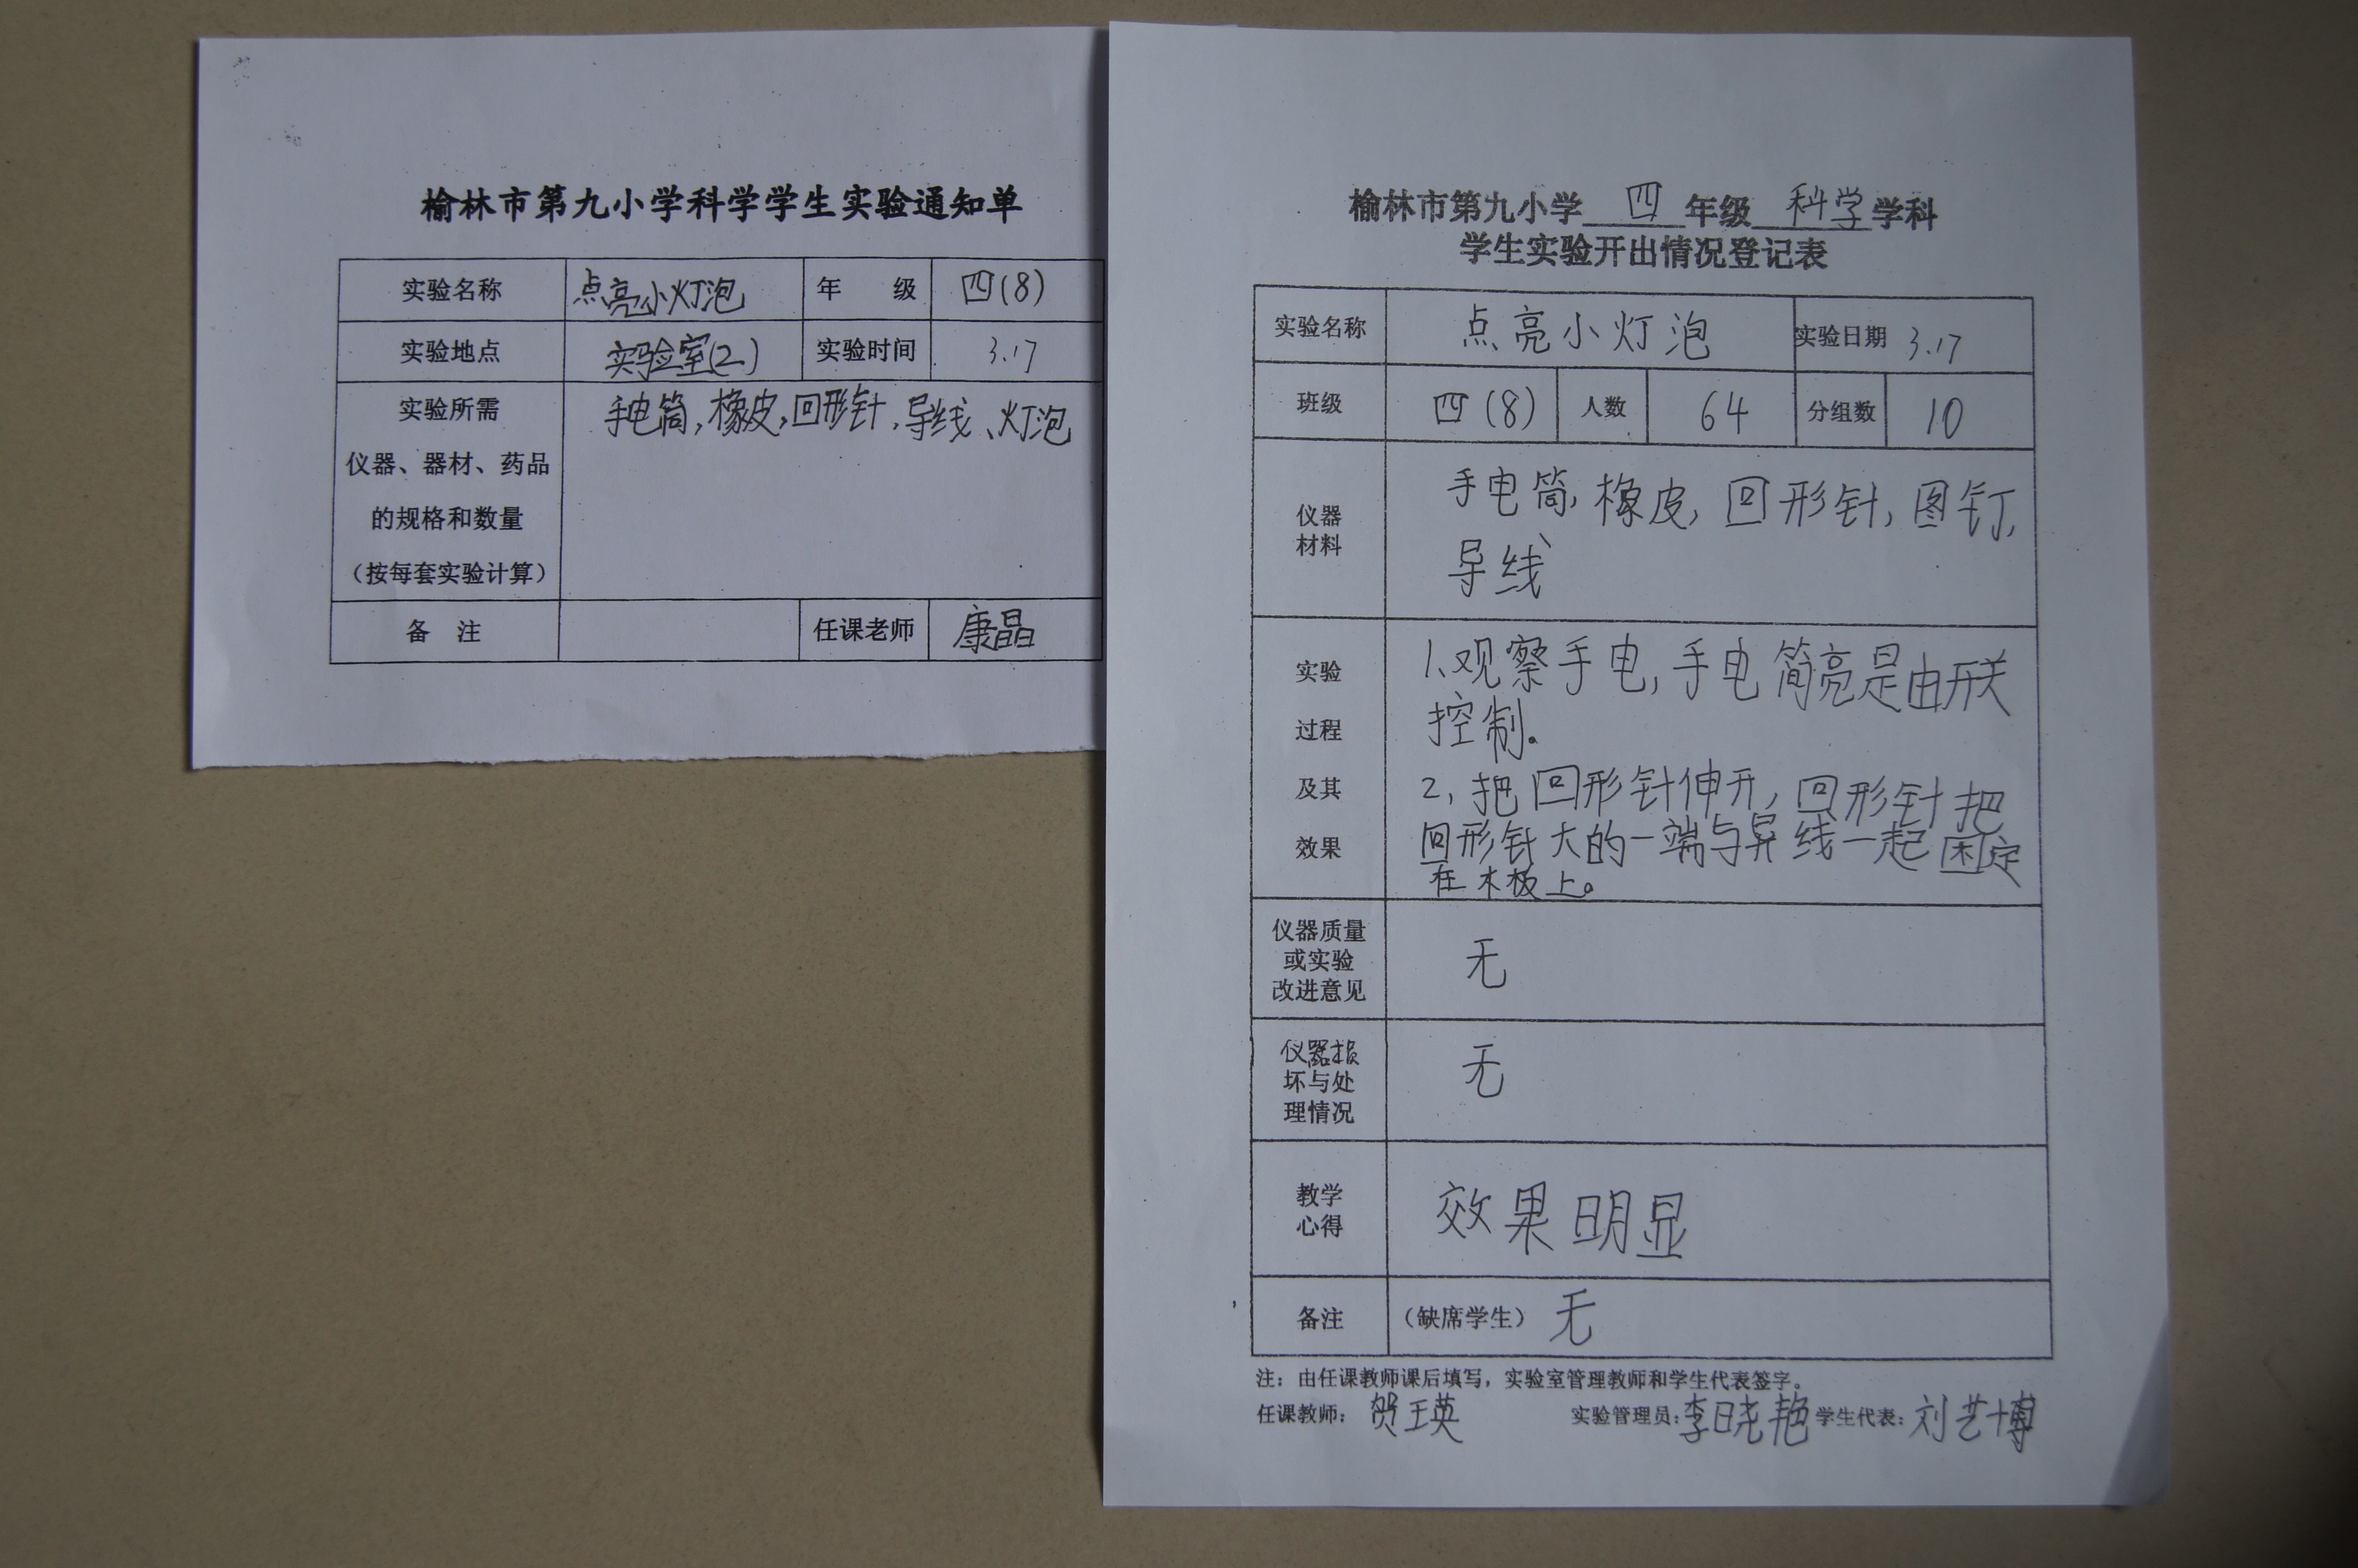 榆林市第九小学科学学生实验通知单
实验名称 点亮小灯泡 年 级 四(8)
实验地点 实验室(2) 实验时间 3.17
实验所需 手电筒,橡皮,回形针,导线、灯泡
仪器、器材、药品
的规格和数量
(按每套实验计算)
备 注 任课老师 康晶
榆林市第九小学 四 年级 科学 学科
学生实验开出情况登记表
实验名称 点亮小灯泡 实验日期 3.17
班级 四(8) 人数 64 分组数 10
仪器
材料
手电筒,橡皮,回形针,图钉,
导线、
实验
过程
及其
效果
1、观察手电,手电筒亮是由开关
控制。
2,把回形针伸开,回形针把
回形针大的一端与导线一起固定
在木板上。
仪器质量
或实验
改进意见
无
仪器损
坏与处
理情况
无
教学
心得
效果明显
备注 (缺席学生) 无
注:由任课教师课后填写,实验室管理教师和学生代表签字。
任课教师: 贺王英 实验管理员:李晓艳 学生代表:刘艺博